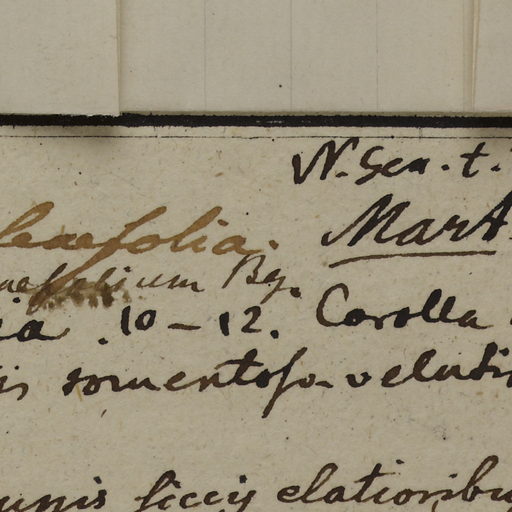 N. Gen. t.
leaefolia. Mart
aefolium Bg.
ia. 10-12. Corolla
is tomentoso-veluti
unis siccis elatioribu